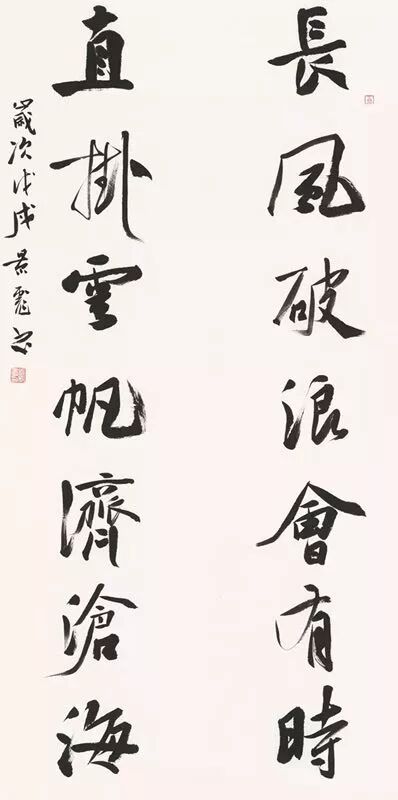 長風破浪會有時
直掛雲帆濟滄海
歲次戊戌